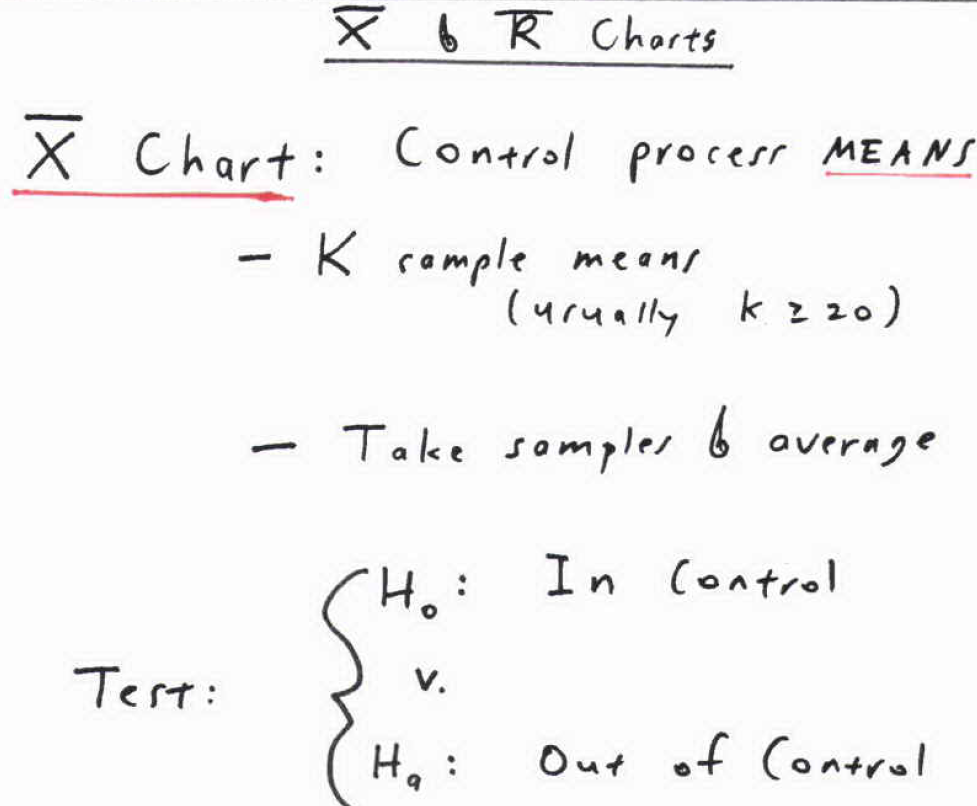 X̅ & R̅ Charts
X̅ Chart: Control process MEANS
- K sample means
(usually k ≥ 20)
- Take samples & average
H₀: In Control
Test: v.
Hₐ: Out of Control